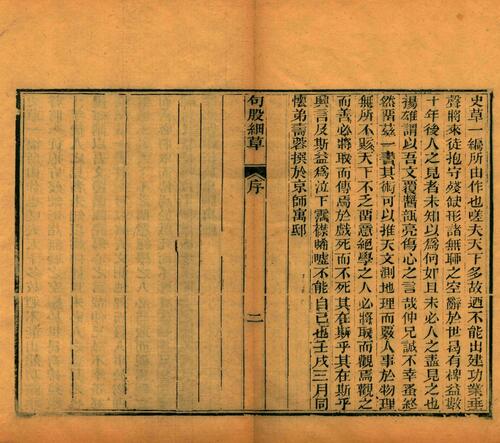 史草一編所由作也嗟夫天下多故迺不能出建功業垂
聲將來徒抱守殘缺形諸無聊之空辭於世曷有裨益數
十年後人之見者未知以爲何如且未必人之盡見之也
揚雄謂以吾文覆醬瓿亮傷心之言哉仲兄誠不幸蚤終
然茵茲一書其術可以推天文測地理而覈人事於物理
無所不賅天下不乏茵意絕學之人必將取而觀焉觀之
而善必將取而傳焉於戲死而不死其在斯乎其在斯乎
興言及斯益爲泣下霑襟晞噓不能自已也壬戌三月同
懷弟壽蓉撰於京師寓邸
句股細草
序
二